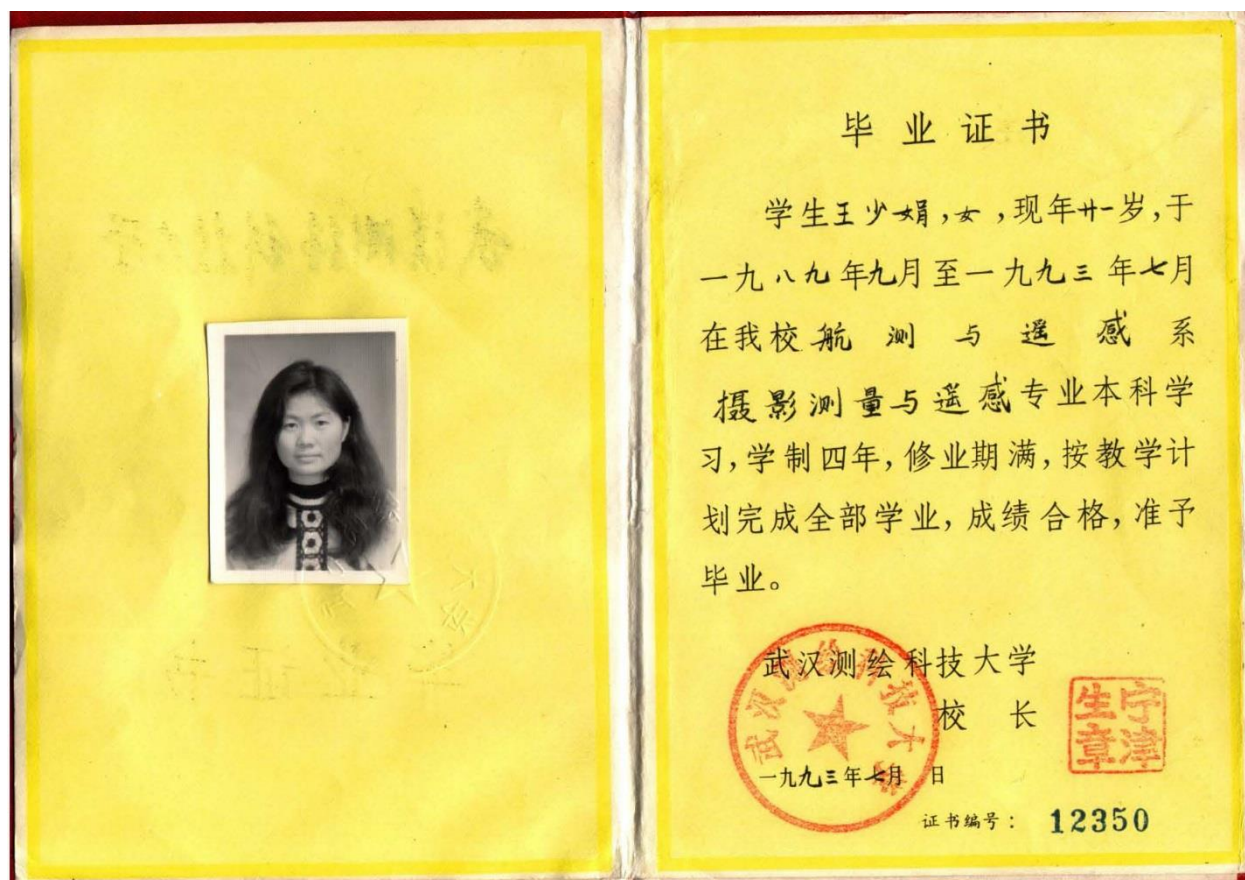 毕业证书
学生王少娟，女，现年廿一岁，于
一九八九年九月至一九九三年七月
在我校航测与遥感系
摄影测量与遥感专业本科学
习，学制四年，修业期满，按教学计
划完成全部学业，成绩合格，准予
毕业。
武汉测绘科技大学
校长
宁津生章
武汉测绘科技大学
一九九三年七月 日
证书编号： 12350